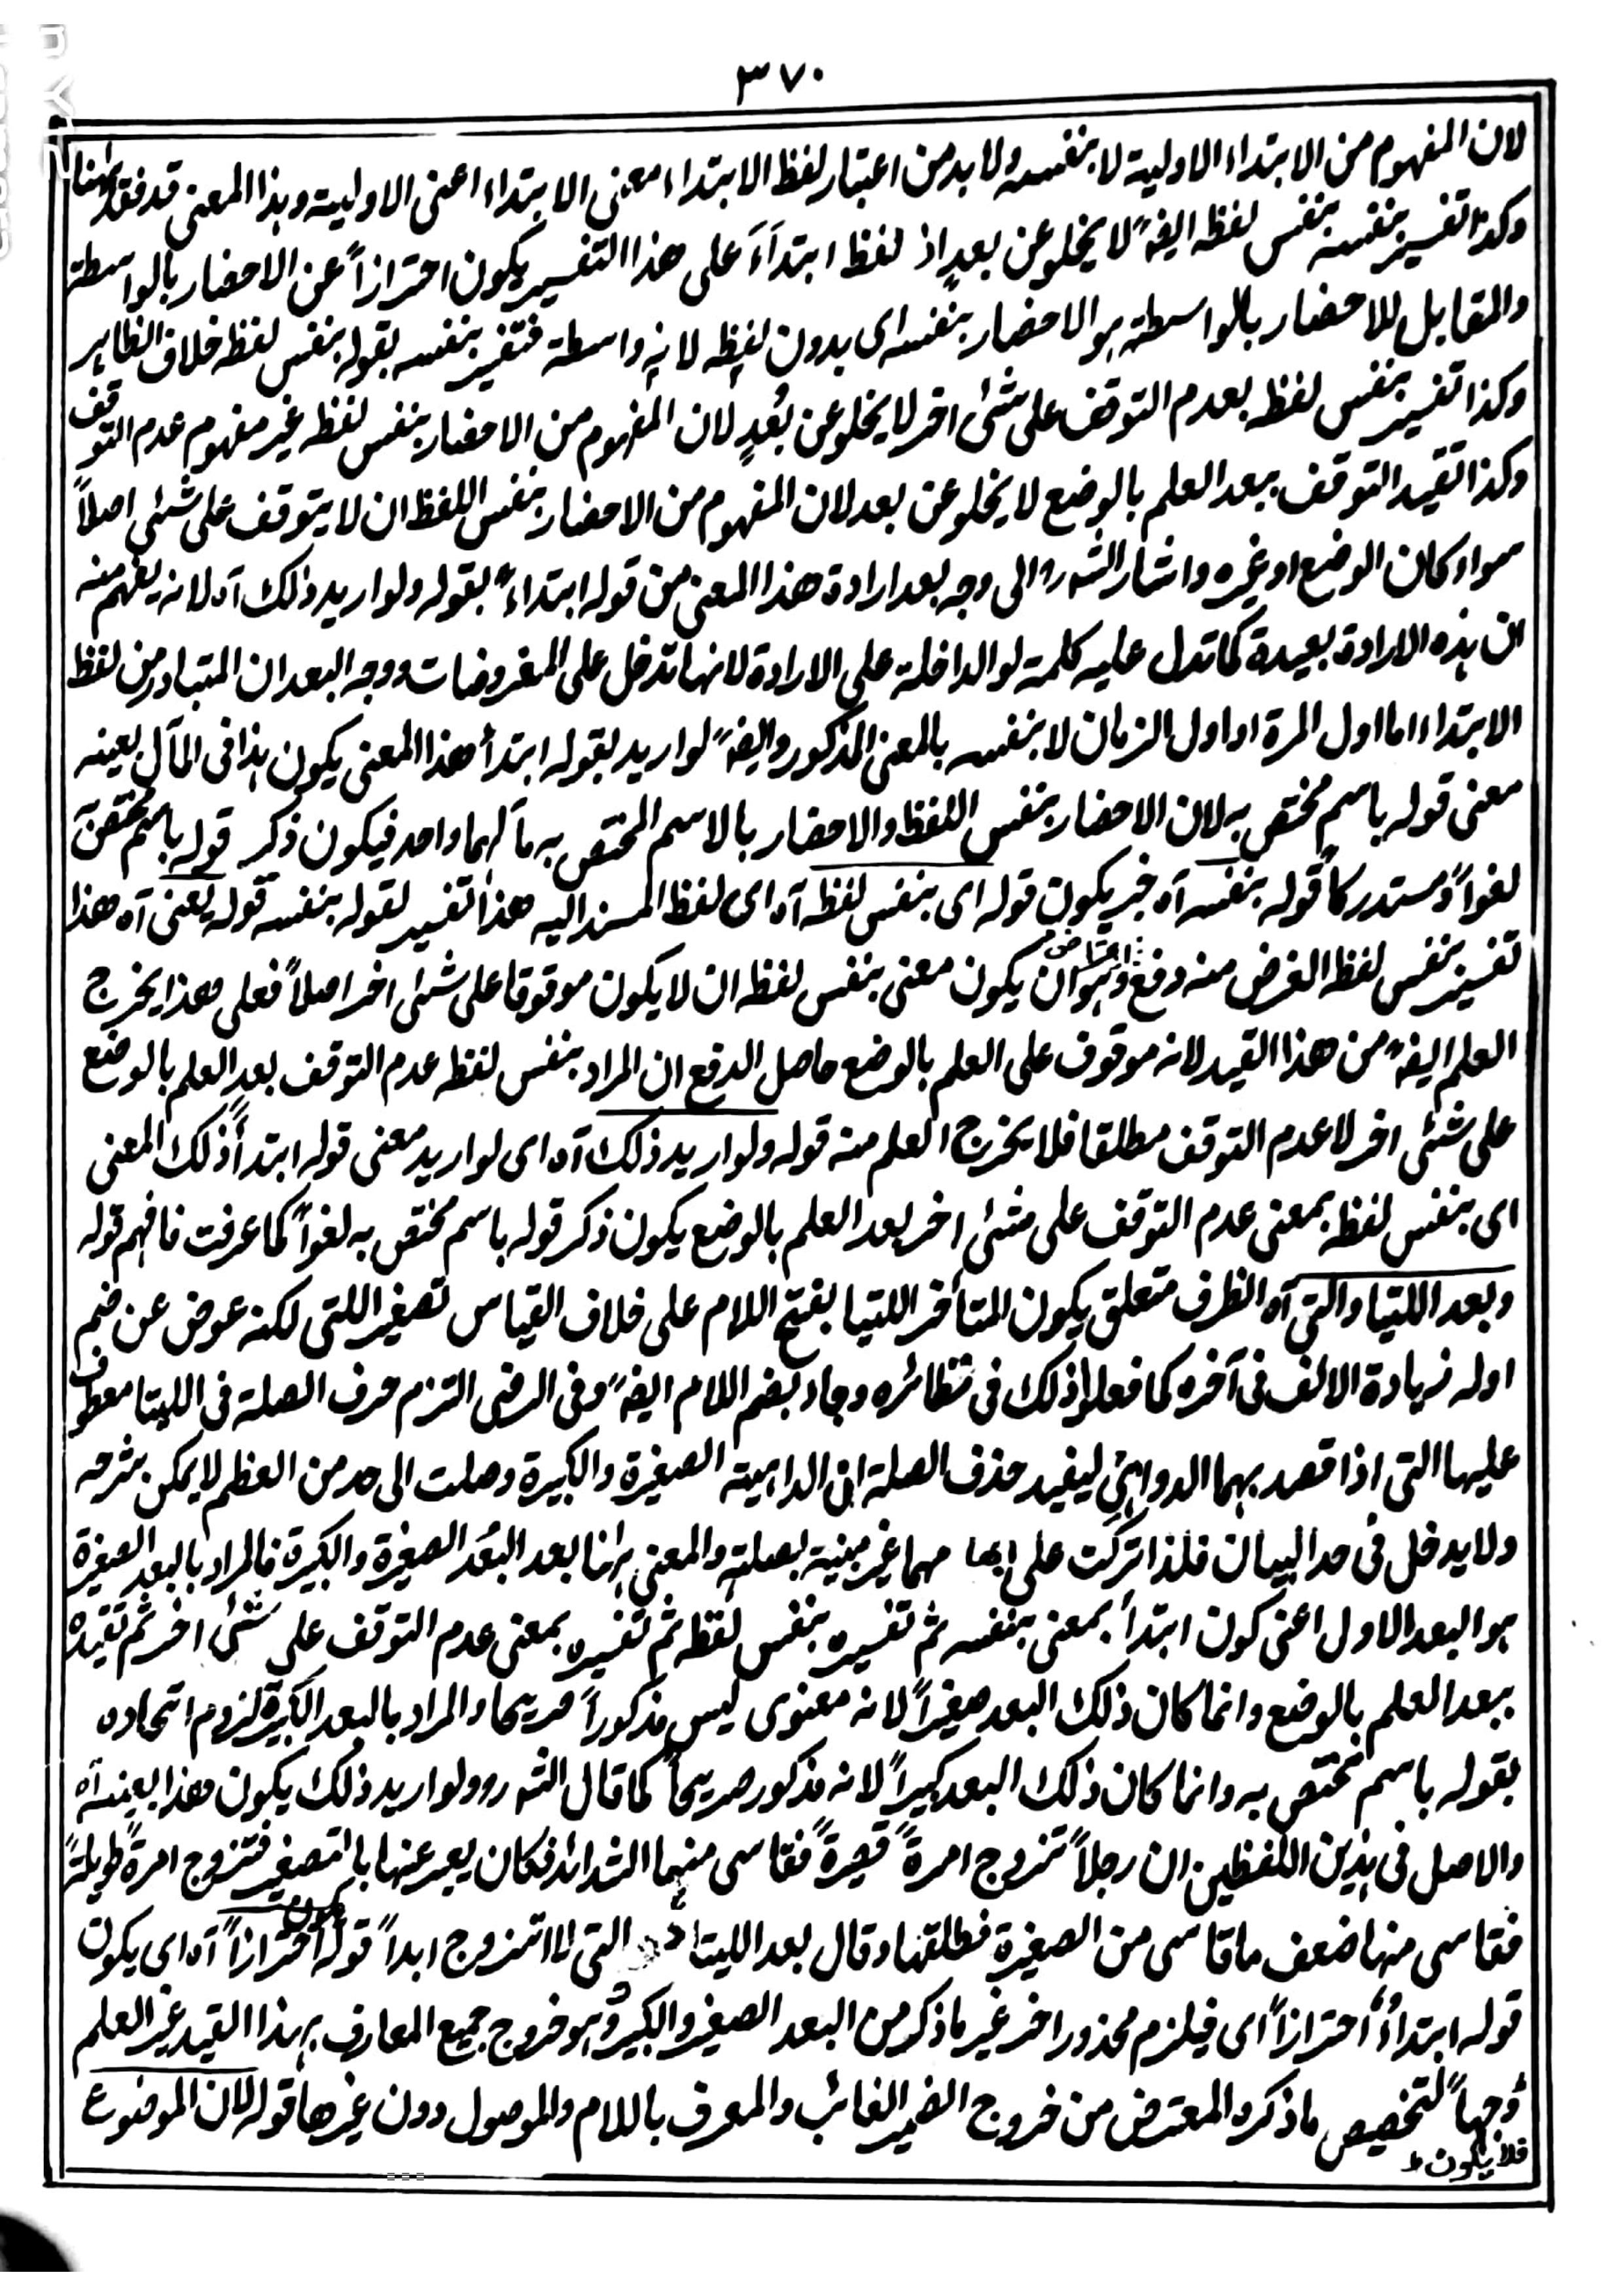 ٣٧٠
لان المفهوم من الابتداء الاولية لا بنفسه ولا بد من اعتبار لفظ الابتداء معنى الابتداء اعنى الاولية وهذا المعنى قد فقد ههنا
وكذا تفسير بنفسه بنفس لفظه ايضاً لا يخلو عن بعد اذ لفظ ابتداءً على هذا التفسير يكون احترازاً عن الاحضار بالواسطة
والمقابل للاحضار بالواسطة هو الاحضار بنفسه اى بدون لفظه لانه واسطة فتفسير بنفسه بقوله بنفس لفظه خلاف الظاهر
وكذا تفسير بنفس لفظه بعدم التوقف على شئ اخر لا يخلو عن بُعدٍ لان المفهوم من الاحضار بنفس لفظه غير مفهوم عدم التوقف
وكذا تقييد التوقف ببعد العلم بالوضع لا يخلو عن بعد لان المفهوم من الاحضار بنفس اللفظ ان لا يتوقف على شئ اصلاً
سواء كان الوضع او غيره واشار الشه ره الى وجه بعد ارادة هذا المعنى من قوله ابتداءً بقوله ولو اريد ذلك آه لانه يفهم منه
ان هذه الارادة بعيدة كما تدل عليه كلمة لو الداخلة على الارادة لانها تدخل على المفروضات ووجه البعد ان المتبادر من لفظ
الابتداء اما اول المرة او اول الزمان لا بنفسه بالمعنى المذكور وايضاً لو اريد بقوله ابتدأ هذا المعنى يكون هذا فى المآل بعينه
معنى قوله باسم مختص به لان الاحضار بنفس اللفظ والاحضار بالاسم المختص به مآلهما واحد فيكون ذكر قوله باسم مختص
لغواً ومستدركاً قوله بنفسه آه خبر يكون قوله اى بنفس لفظه آه اى لفظ المسند اليه هذا تفسير لقوله بنفسه قوله يعنى آه هذا
تفسير بنفس لفظ الغرض منه دفع اعتراض وهو ان يكون معنى بنفس لفظه ان لا يكون موقوفا على شئ اخر اصلاً فعلى هذا يخرج
العلم ايضاً من هذا القيد لانه موقوف على العلم بالوضع حاصل الدفع ان المراد بنفس لفظه عدم التوقف بعد العلم بالوضع
على شئ اخر لا عدم التوقف مطلقا فلا يخرج العلم منه قوله ولو اريد ذلك آه اى لو اريد معنى قوله ابتدأً ذلك المعنى
اى بنفس لفظه بمعنى عدم التوقف على شئ اخر بعد العلم بالوضع يكون ذكر قوله باسم مختص به لغواً كما عرفت فافهم قوله
وبعد اللتيا والتى آه الظرف متعلق يكون المتأخر اللتيا بفتح اللام على خلاف القياس تصغير اللتى لكنه عوض عن ضم
اوله زيادة الالف فى آخره كما فعلوا ذلك فى نظائره وجاء بضم اللام ايضاً وفى الرضى التزم حرف الصلة فى اللتيا معطوف
عليها التى اذا قصد بهما الدواهى ليفيد حذف الصلة ان الداهية الصغيرة والكبيرة وصلت الى حد من العظم لا يمكن شرحه
ولا يدخل فى حد البيان فلذا تركت على ابهامهما غير مبنية بصلة والمعنى ههنا بعد البعد الصغيرة والكبيرة فالمراد بالبعد الصغيرة
هو البعد الاول اعنى كون ابتدأ بمعنى بنفسه ثم تفسيره بنفس لفظه ثم تفسيره بمعنى عدم التوقف على شئ اخر ثم تقييده
ببعد العلم بالوضع وانما كان ذلك البعد صغيراً لانه معنوى ليس مذكوراً صريحا والمراد بالبعد الكبيرة لزوم اتحاده
بقوله باسم مختص به وانما كان ذلك البعد كبيراً لانه مذكور صريحاً كما قال الشه ره ولو اريد ذلك يكون هذا بعينه آه
والاصل فى هذين اللفظين ان رجلاً تزوج امرةً قصيرةً فقاسى منها الشدائد فكان يعبر عنها بالتصغير فتزوج امرةً طويلةً
فقاسى منها ضعف ما قاسى من الصغيرة فطلقها وقال بعد اللتيا والتى لا اتزوج ابداً قوله احترازاً آه اى يكون
قوله ابتداءً احترازاً اى فيلزم محذور اخر غير ما ذكر من البعد الصغير والكبير وهو خروج جميع المعارف بهذا القيد غير العلم
وجهاً لتخصيص ما ذكره المعترض من خروج الضمير الغائب والمعرف باللام والموصول دون غيرها قوله لان الموضوع
فلا يكون